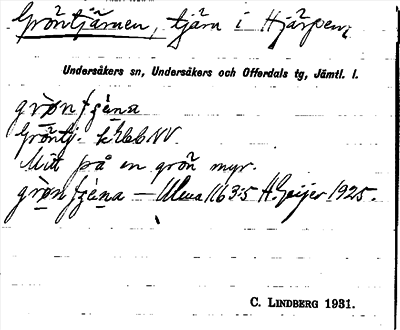 Gröntjärnen, tjärn i Hjärpen,
Undersåkers sn, Undersåkers och Offerdals tg, Jämtl. l.
Gröntj.
Mitt på en grön myr.
Ulma 116 3:5 H. Geijer 1925.
C. LINDBERG 1931.